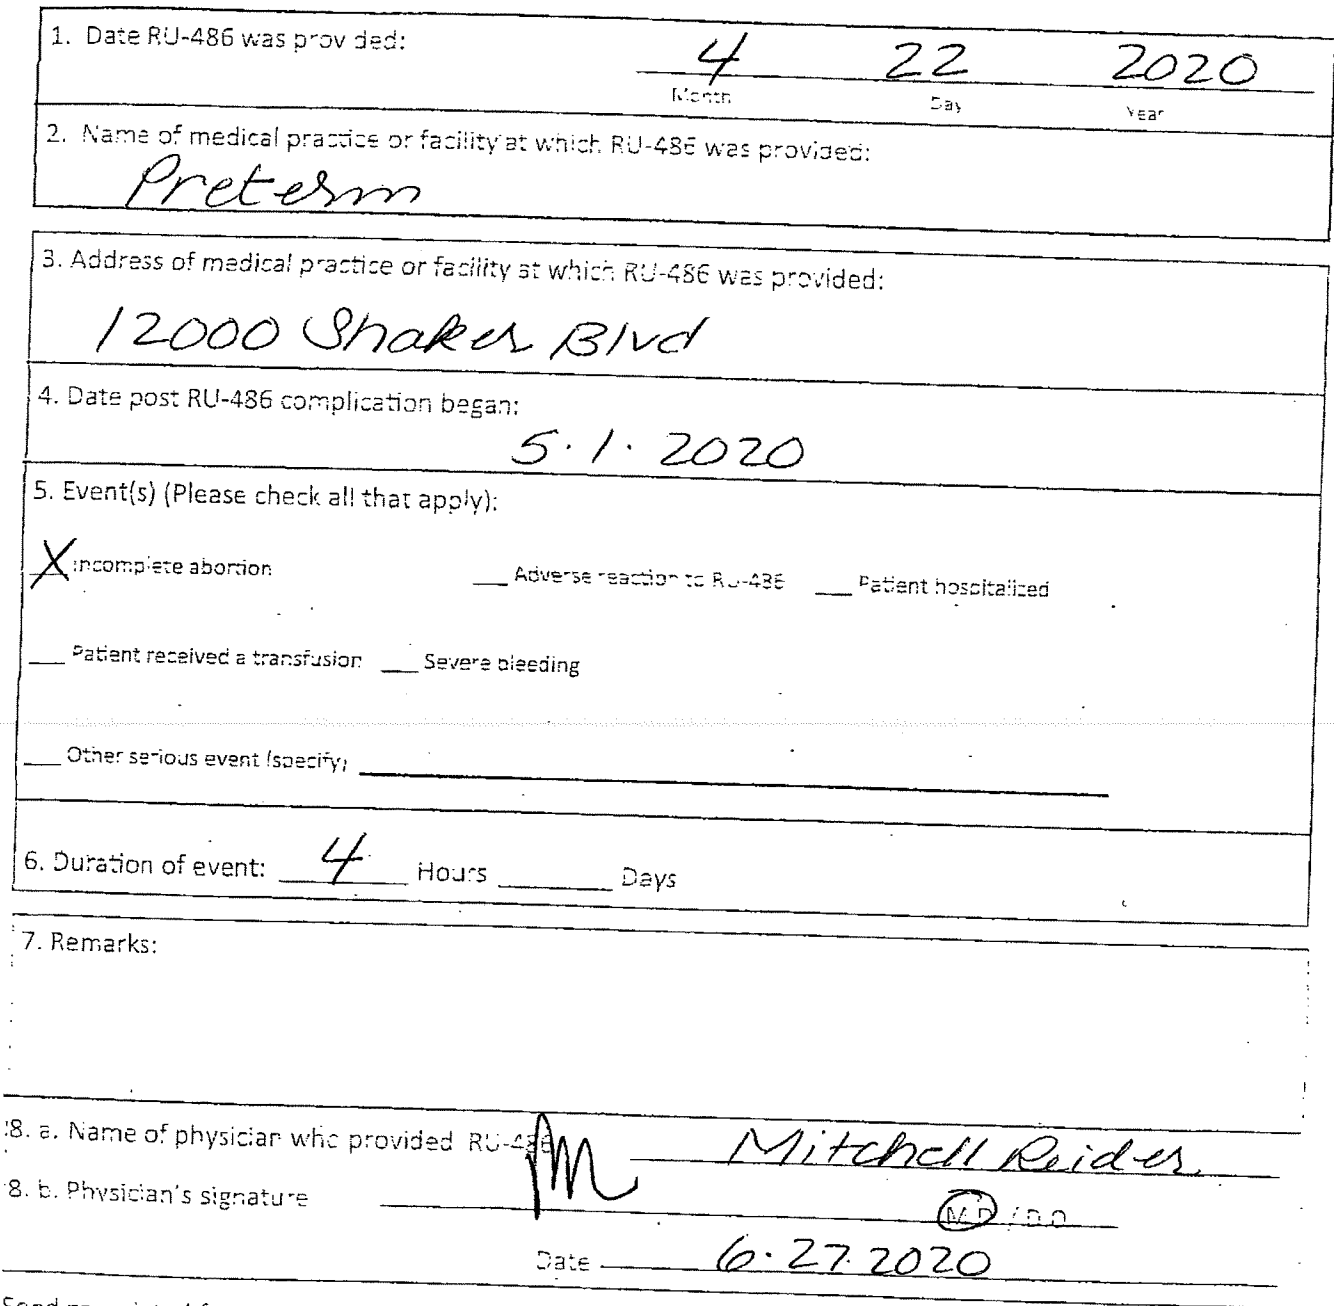 1. Date RU-486 was provided:
4 22 2020
Month Day Year
2. Name of medical practice or facility at which RU-486 was provided:
Preterm
3. Address of medical practice or facility at which RU-486 was provided:
12000 Shaker Blvd
4. Date post RU-486 complication began:
5.1.2020
5. Event(s) (Please check all that apply):
X Incomplete abortion ___ Adverse reaction to RU-486 ___ Patient hospitalized
___ Patient received a transfusion ___ Severe bleeding
___ Other serious event (specify)
6. Duration of event: 4 Hours ___ Days
7. Remarks:
8. a. Name of physician who provided RU-486 Mitchell Reider
8. b. Physician's signature M.D / D.O
Date 6.27.2020